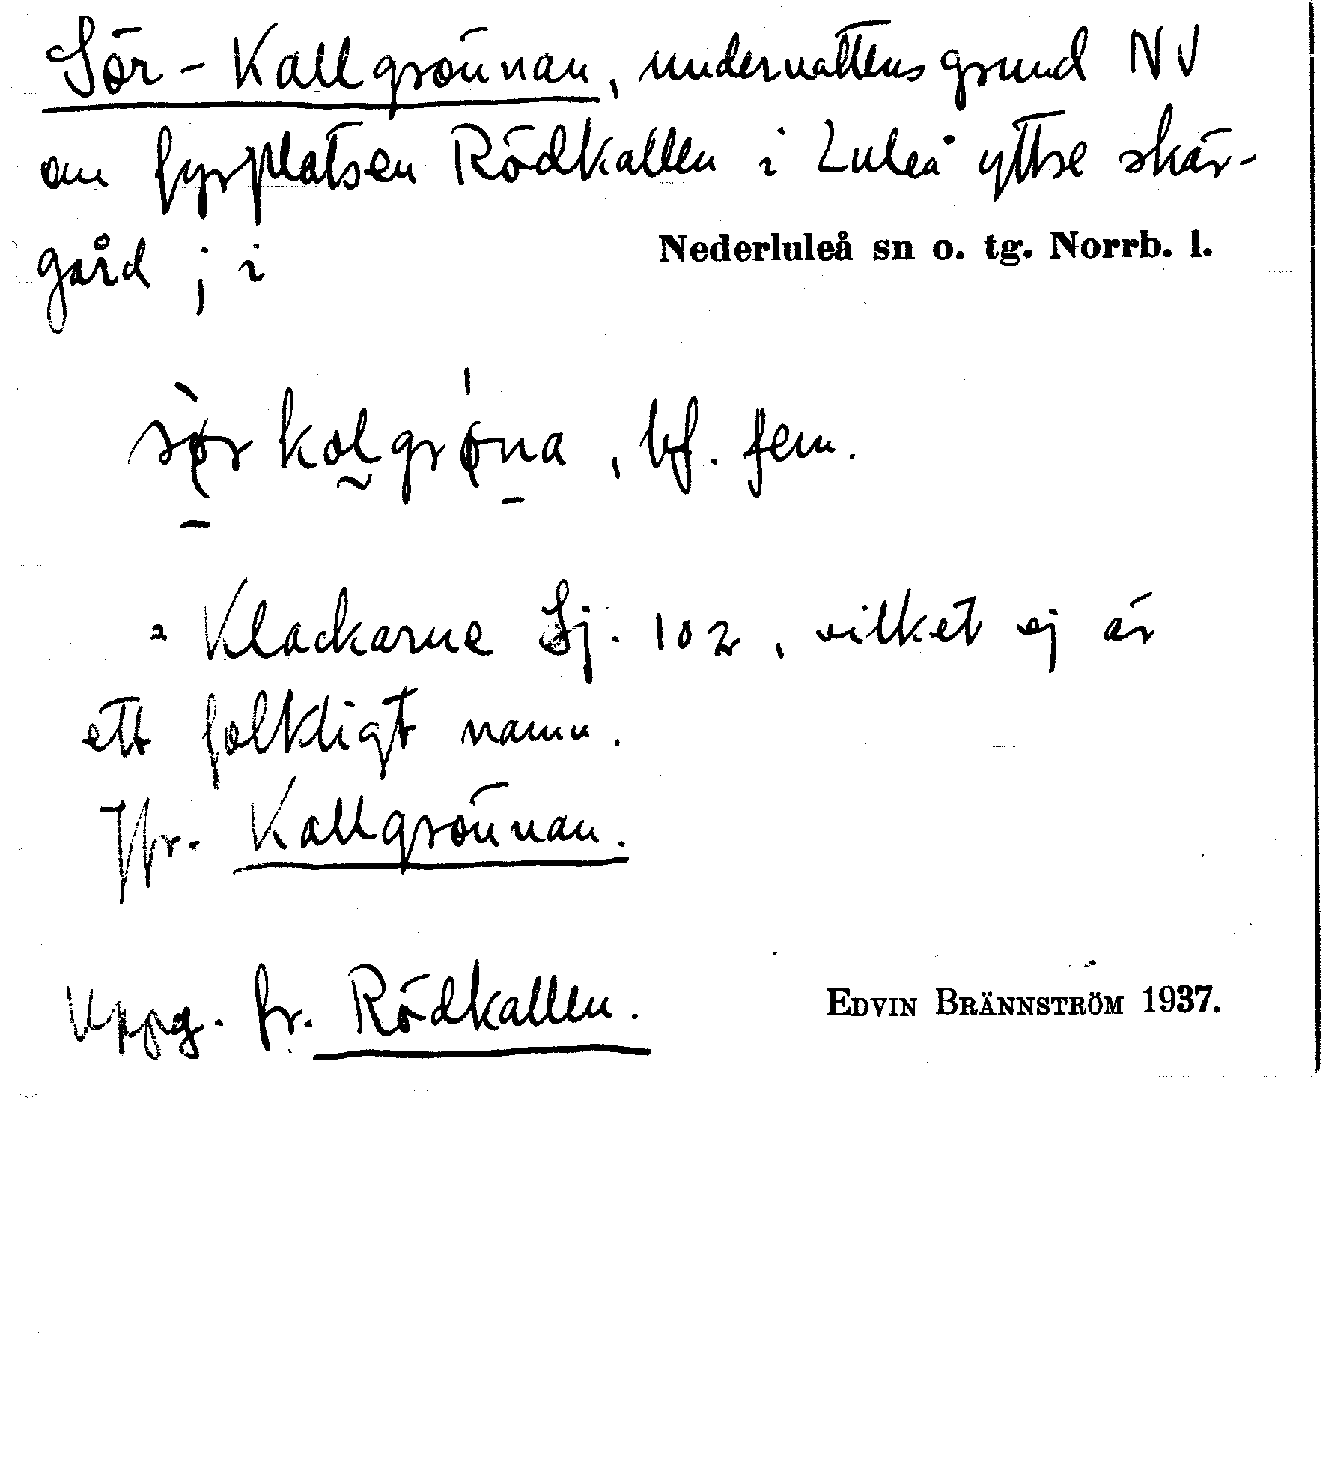 Sör-Kallgrönnan, undervattensgrund NV
om fyrplatsen Rödkallen i Luleå yttre skär-
gård ; i Nederluleå sn o. tg. Norrb. l.
sø̀rkalgrø̍na, bf. fem.
= Klackarne Sj. 102, vilket ej är
ett folkligt namn.
Jfr. Kallgrönnan.
Uppg. fr. Rödkallen. EDVIN BRÄNNSTRÖM 1937.